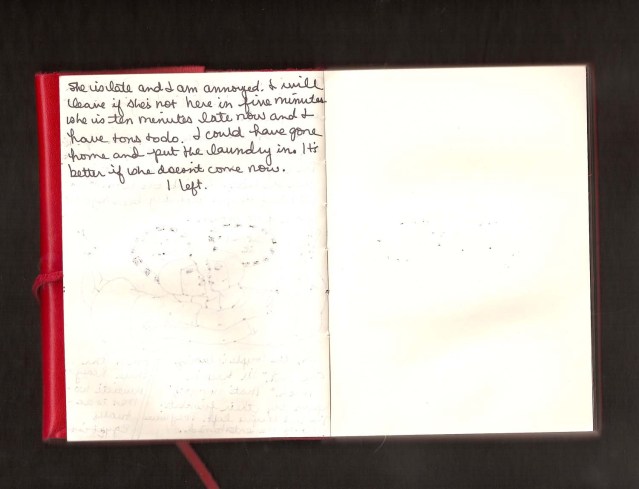 She is late and I am annoyed. I will
leave if she's not here in five minutes
she is ten minutes late now and I
have tons to do. I could have gone
home and put the laundry in. It's
better if she doesn't come now.
I left.